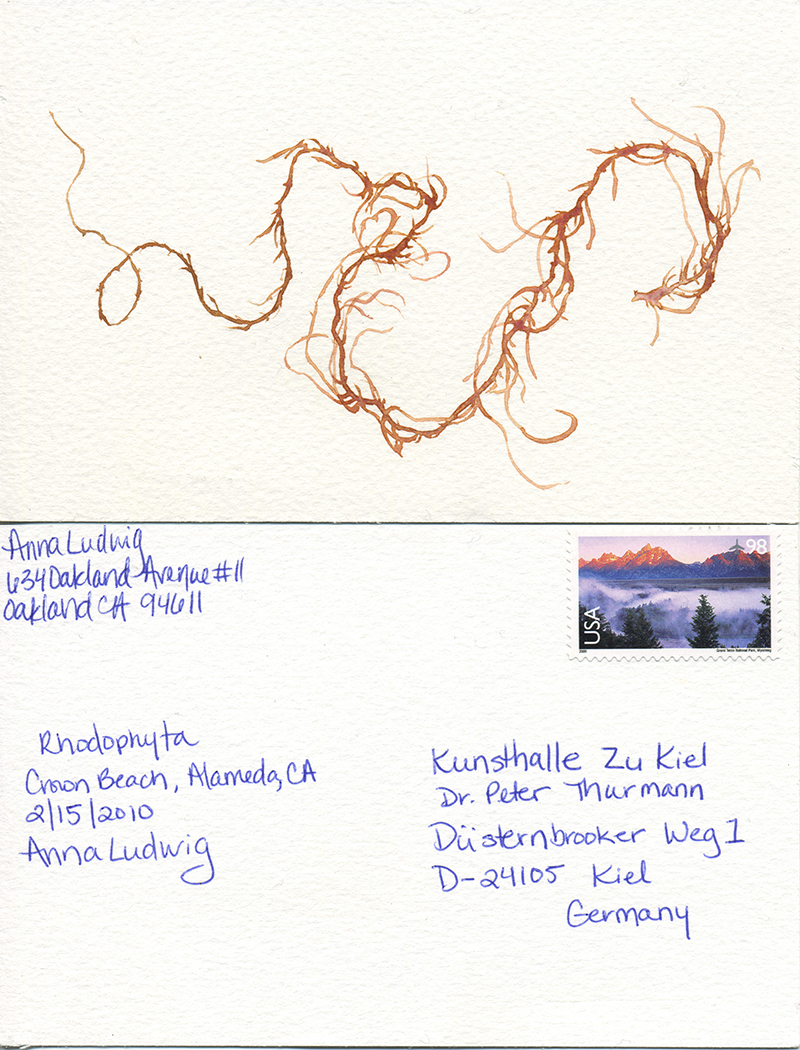 Anna Ludwig
634 Oakland Avenue #11
Oakland CA 94611
98
USA
Rhodophyta
Crown Beach, Alameda, CA
2/15/2010
Anna Ludwig
Kunsthalle Zu Kiel
Dr. Peter Thurmann
Düsternbrooker Weg 1
D-24105 Kiel
Germany
2009
Grand Teton National Park, Wyoming